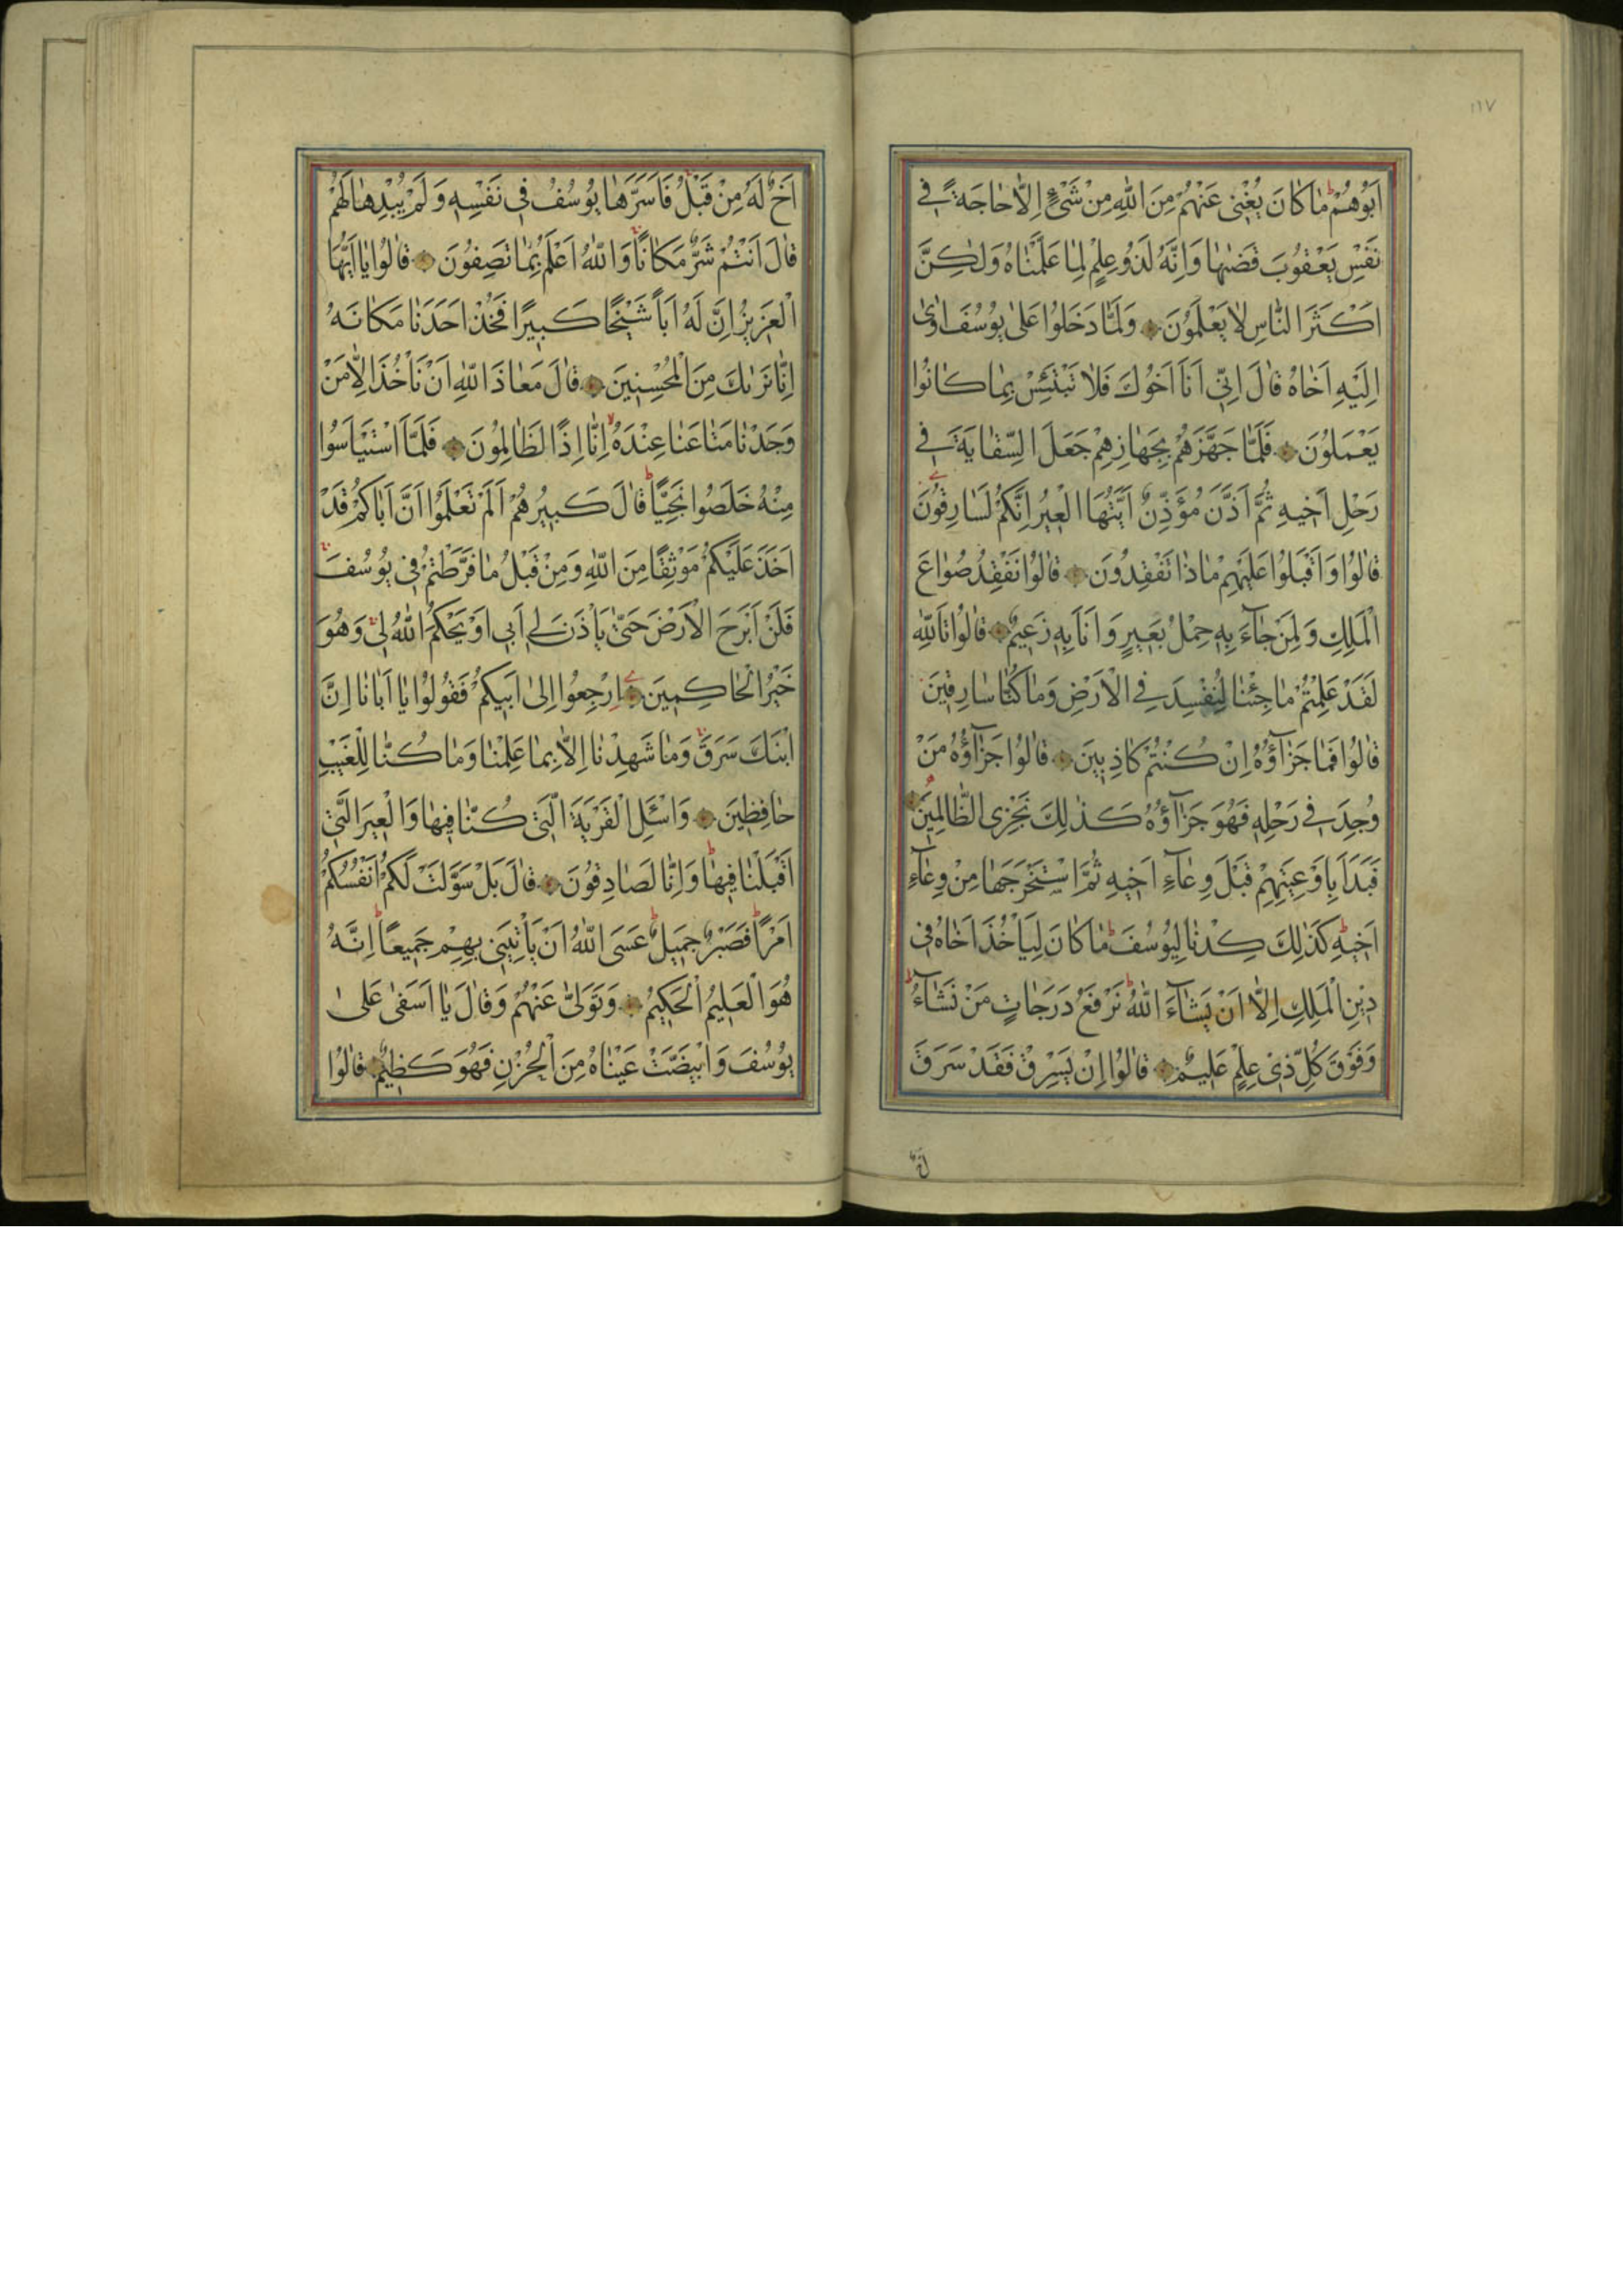 ١١٧
اَبُوهُمْ مٰا كٰانَ يُغْنِى عَنْهُمْ مِنَ اللّٰهِ مِنْ شَىْءٍ اِلاّٰ حٰاجَةً فِى
نَفْسِ يَعْقُوبَ قَضٰيهٰا وَاِنَّهُ لَذُو عِلْمٍ لِمٰا عَلَّمْنٰاهُ وَلٰكِنَّ
اَكْثَرَ النّٰاسِ لاٰ يَعْلَمُونَ وَلَمّٰا دَخَلُوا عَلىٰ يُوسُفَ اٰوىٰ
اِلَيْهِ اَخٰاهُ قٰالَ اِنِّى اَنَا اَخُوكَ فَلاٰ تَبْتَئِسْ بِمٰا كٰانُوا
يَعْمَلُونَ فَلَمّٰا جَهَّزَهُمْ بِجَهٰازِهِمْ جَعَلَ السِّقٰايَةَ فِى
رَحْلِ اَخِيهِ ثُمَّ اَذَّنَ مُؤَذِّنٌ اَيَّتُهَا الْعِيرُ اِنَّكُمْ لَسٰارِقُونَ
قٰالُوا وَاَقْبَلُوا عَلَيْهِمْ مٰاذٰا تَفْقِدُونَ قٰالُوا نَفْقِدُ صُوٰاعَ
الْمَلِكِ وَلِمَنْ جٰآءَ بِهِ حِمْلُ بَعِيرٍ وَاَنَا بِهِ زَعِيمٌ قٰالُوا تَاللّٰهِ
لَقَدْ عَلِمْتُمْ مٰا جِئْنٰا لِنُفْسِدَ فِى الْاَرْضِ وَمٰا كُنّٰا سٰارِقِينَ
قٰالُوا فَمٰا جَزٰآؤُهُ اِنْ كُنْتُمْ كٰاذِبِينَ قٰالُوا جَزٰآؤُهُ مَنْ
وُجِدَ فِى رَحْلِهِ فَهُوَ جَزٰآؤُهُ كَذٰلِكَ نَجْزِى الظّٰالِمِينَ
فَبَدَاَ بِاَوْعِيَتِهِمْ قَبْلَ وِعٰآءِ اَخِيهِ ثُمَّ اسْتَخْرَجَهٰا مِنْ وِعٰآءِ
اَخِيهِ كَذٰلِكَ كِدْنٰا لِيُوسُفَ مٰا كٰانَ لِيَاْخُذَ اَخٰاهُ فِى
دِينِ الْمَلِكِ اِلاّٰ اَنْ يَشٰآءَ اللّٰهُ نَرْفَعُ دَرَجٰاتٍ مَنْ نَشٰآءُ
وَفَوْقَ كُلِّ ذِى عِلْمٍ عَلِيمٌ قٰالُوا اِنْ يَسْرِقْ فَقَدْ سَرَقَ
اَخٌ
اَخٌ لَهُ مِنْ قَبْلُ فَاَسَرَّهٰا يُوسُفُ فِى نَفْسِهِ وَلَمْ يُبْدِهٰا لَهُمْ
قٰالَ اَنْتُمْ شَرٌّ مَكٰانًا وَاللّٰهُ اَعْلَمُ بِمٰا تَصِفُونَ قٰالُوا يٰا اَيُّهَا
الْعَزِيزُ اِنَّ لَهُ اَبًا شَيْخًا كَبِيرًا فَخُذْ اَحَدَنٰا مَكٰانَهُ
اِنّٰا نَرٰيكَ مِنَ الْمُحْسِنِينَ قٰالَ مَعٰاذَ اللّٰهِ اَنْ نَاْخُذَ اِلاّٰ مَنْ
وَجَدْنٰا مَتٰاعَنٰا عِنْدَهُ اِنّٰا اِذًا لَظٰالِمُونَ فَلَمَّا اسْتَيْاَسُوا
مِنْهُ خَلَصُوا نَجِيًّا قٰالَ كَبِيرُهُمْ اَلَمْ تَعْلَمُوا اَنَّ اَبٰاكُمْ قَدْ
اَخَذَ عَلَيْكُمْ مَوْثِقًا مِنَ اللّٰهِ وَمِنْ قَبْلُ مٰا فَرَّطْتُمْ فِى يُوسُفَ
فَلَنْ اَبْرَحَ الْاَرْضَ حَتّٰى يَاْذَنَ لِى اَبِى اَوْ يَحْكُمَ اللّٰهُ لِى وَهُوَ
خَيْرُ الْحٰاكِمِينَ اِرْجِعُوا اِلىٰ اَبِيكُمْ فَقُولُوا يٰا اَبٰانٰا اِنَّ
ابْنَكَ سَرَقَ وَمٰا شَهِدْنٰا اِلاّٰ بِمٰا عَلِمْنٰا وَمٰا كُنّٰا لِلْغَيْبِ
حٰافِظِينَ وَاسْئَلِ الْقَرْيَةَ الَّتِى كُنّٰا فِيهٰا وَالْعِيرَ الَّتِى
اَقْبَلْنٰا فِيهٰا وَاِنّٰا لَصٰادِقُونَ قٰالَ بَلْ سَوَّلَتْ لَكُمْ اَنْفُسُكُمْ
اَمْرًا فَصَبْرٌ جَمِيلٌ عَسَى اللّٰهُ اَنْ يَاْتِيَنِى بِهِمْ جَمِيعًا اِنَّهُ
هُوَ الْعَلِيمُ الْحَكِيمُ وَتَوَلّٰى عَنْهُمْ وَقٰالَ يٰا اَسَفىٰ عَلىٰ
يُوسُفَ وَابْيَضَّتْ عَيْنٰاهُ مِنَ الْحُزْنِ فَهُوَ كَظِيمٌ قٰالُوا